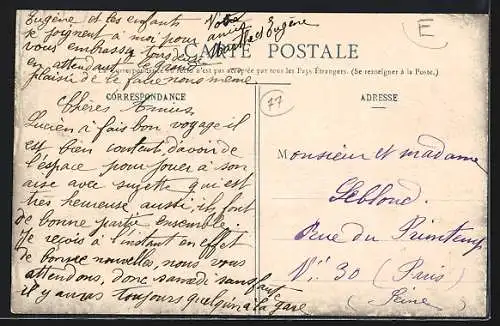 Eugène et les enfants
se joignent à moi pour
vous embrasser tous deux
en attendant le grand
plaisir de le faire nous même.
Votre
amie
Marthe et Eugène
E
CARTE POSTALE
La Correspondance au recto n'est pas acceptée par tous les Pays Étrangers. (Se renseigner à la Poste.)
CORRESPONDANCE
77
ADRESSE
Chères Amies,
Lucien à fais bon voyage il
est bien contents d'avoir de
l'espace pour jouer à son
aise avec sujette qui est
très heureuse aussi, ils font
de bonne partie ensemble.
Je reçois à l'instant en effet
de bonne nouvelles, nous vous
attendons, donc samedi sans faut
il y auras toujours quelqun a la gare
Monsieur et madame
Leblond.
Rue du Printemps
N°: 30 (Paris)
(Seine)